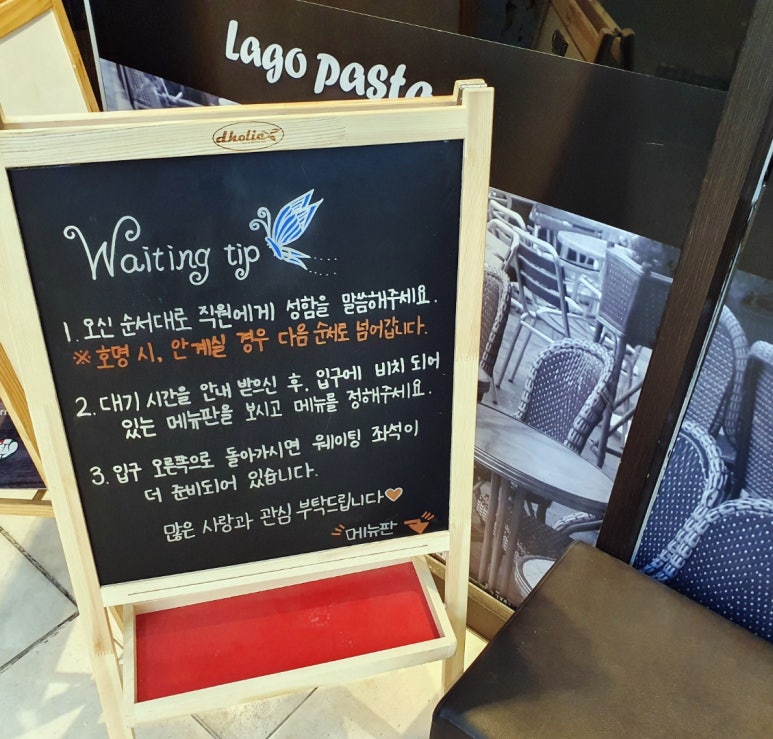 Lago Pasta
dholic
Waiting tip
1. 오신 순서대로 직원에게 성함을 말씀해주세요.
※ 호명 시, 안 계실 경우 다음 순서로 넘어갑니다.
2. 대기 시간을 안내 받으신 후, 입구에 비치 되어
있는 메뉴판을 보시고 메뉴를 정해주세요.
3. 입구 오른쪽으로 돌아가시면 웨이팅 좌석이
더 준비되어 있습니다.
많은 사랑과 관심 부탁드립니다♡
메뉴판